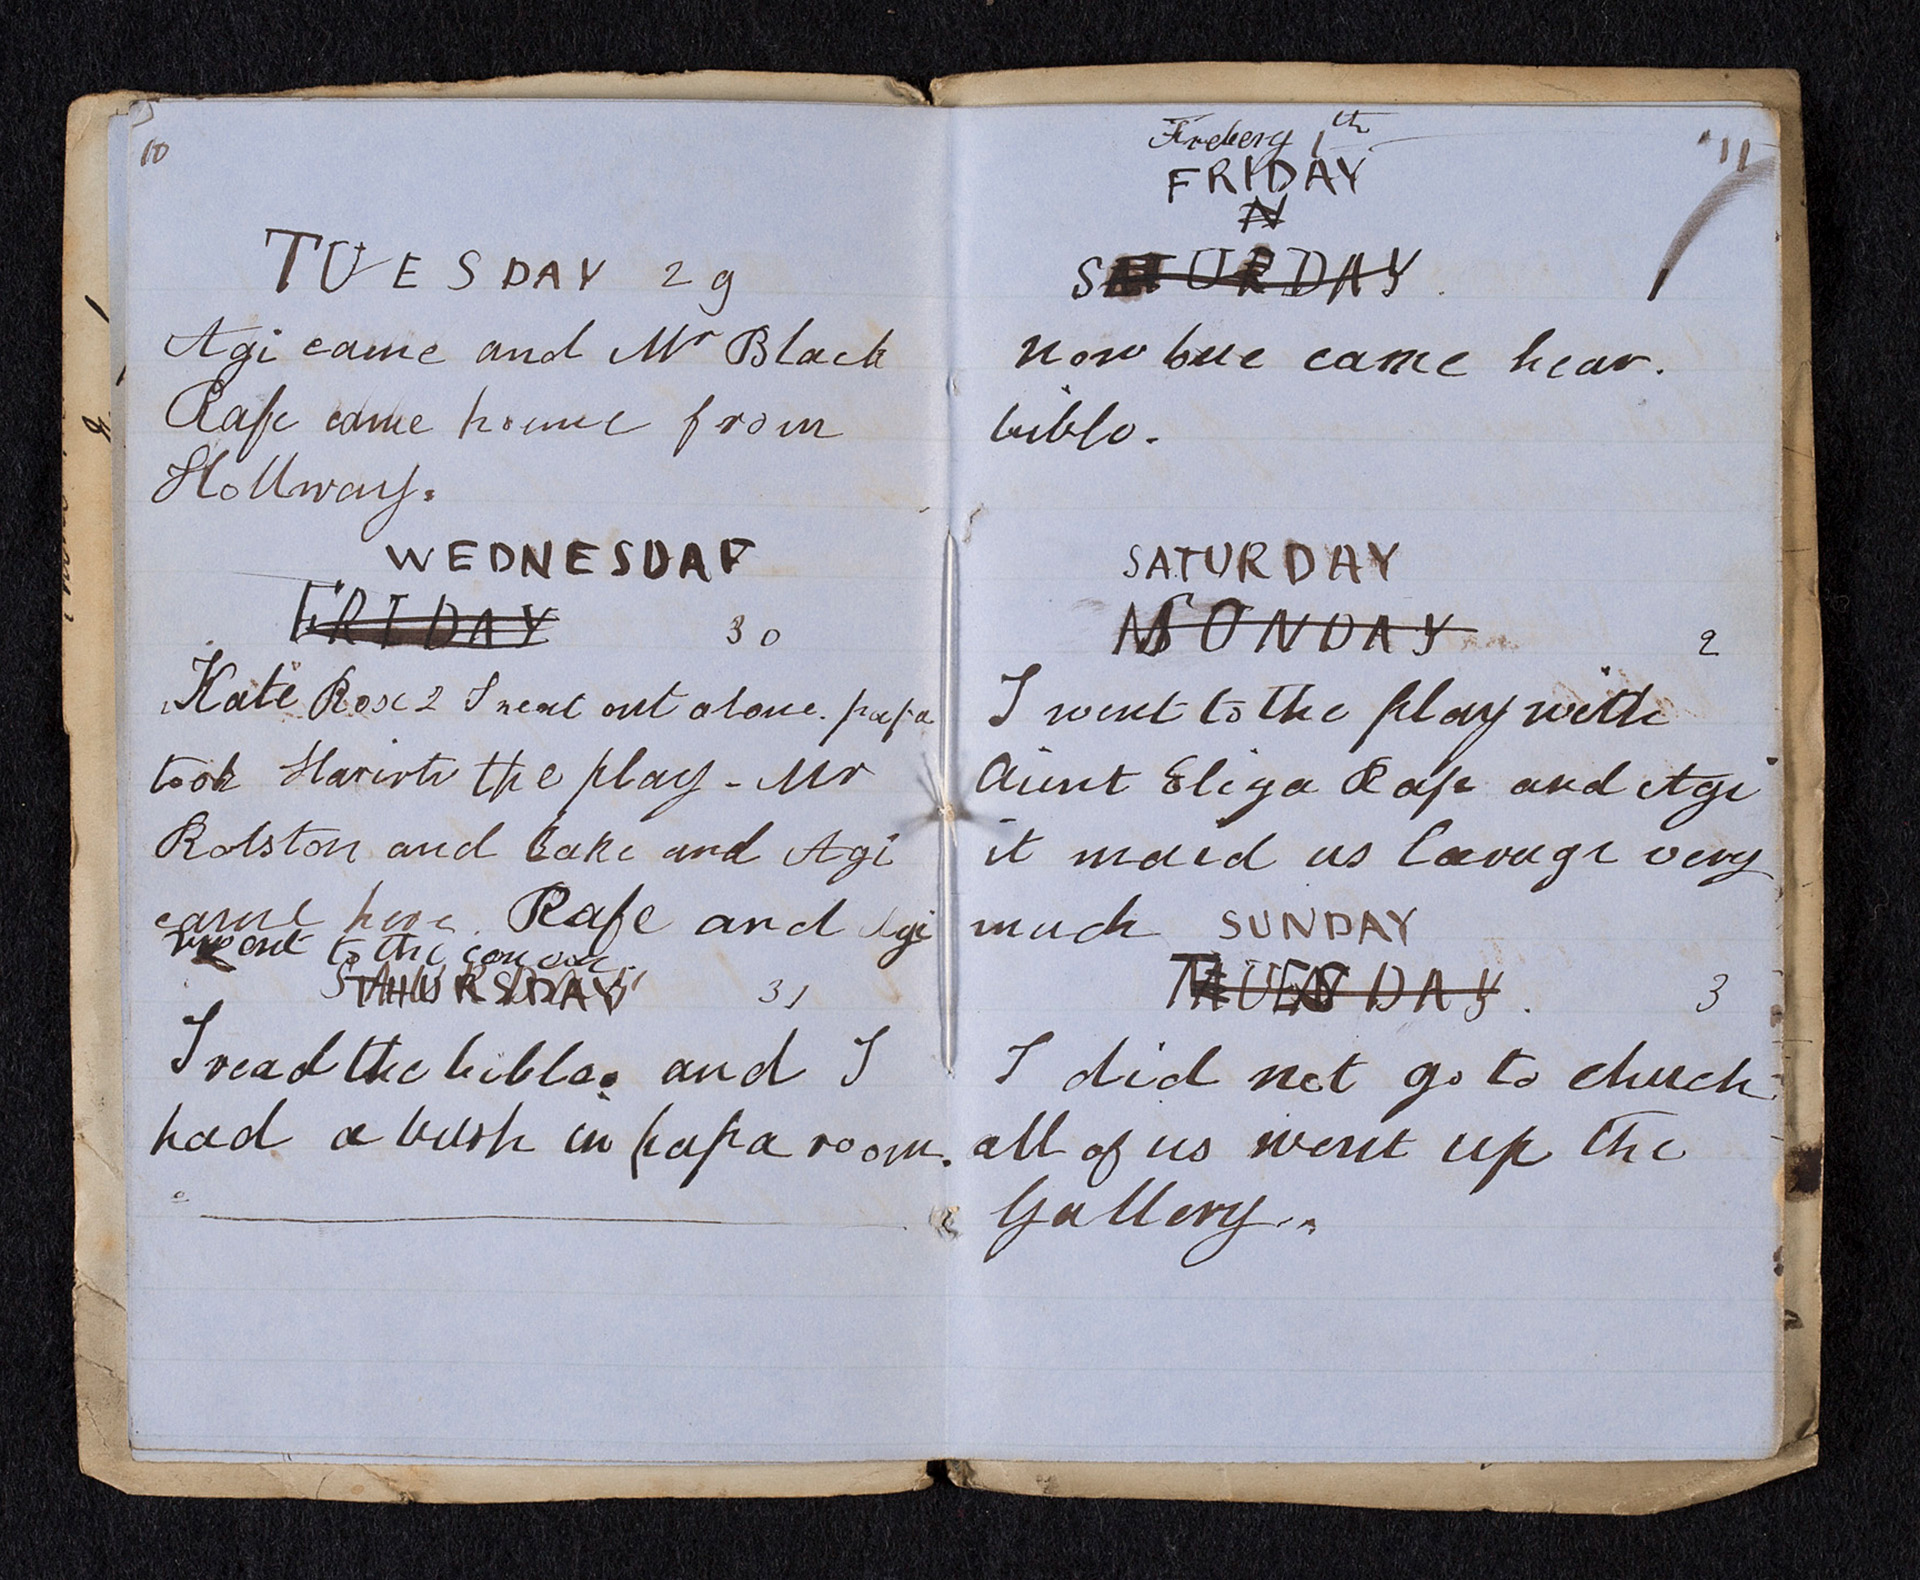 10
TUESDAY 29
Agi came and Mr Black
Rafe came home from
Hollway.
WEDNESDAY
FRIDAY 30
Kate Rose 2 I went out alone. papa
took Harirt the play - Mr
Rolston and Jake and Agi
came here. Rafe and Agi
went to the
THURSDAY 31
I read the bible. and I
had a bush in papa room.
11
Frebery 1th
FRIDAY
N
SATURDAY.
now bue came hear.
biblo.
SATURDAY
MONDAY 2
I went to the play with
Aunt Eliza Rafe and Agi
it maid us laruge very
much SUNDAY
TUESDAY. 3
I did not go to chuch
all of us went up the
Gallery..